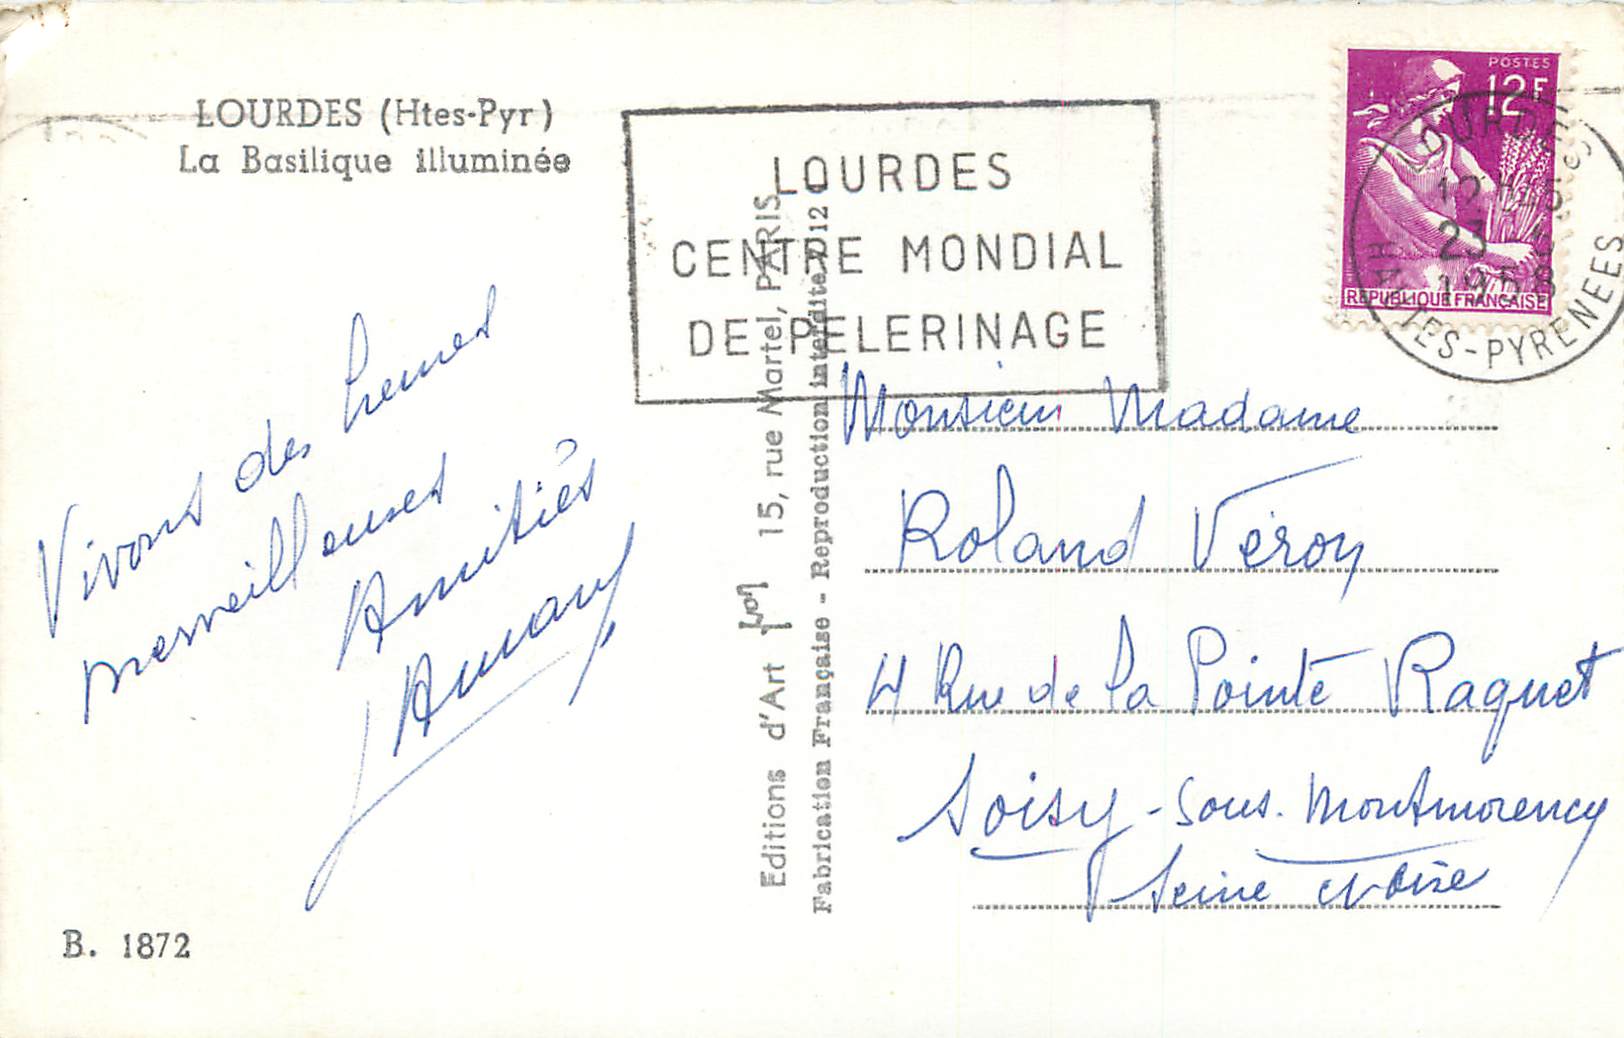 LOURDES (Htes-Pyr)
La Basilique illuminée
LOURDES
CENTRE MONDIAL
DE PELERINAGE
POSTES
12F
REPUBLIQUE FRANÇAISE
LOURDES
23
1958
HAUTES-PYRENEES
Vivons des heures
merveilleuses
Amitiés
Editions d'Art 15, rue Martel, PARIS
Fabrication Française - Reproduction interdite
Monsieur Madame
Roland Véron
4 Rue de la Pointe Raquet
Soisy-sous-Montmorency
Seine et Oise
B. 1872